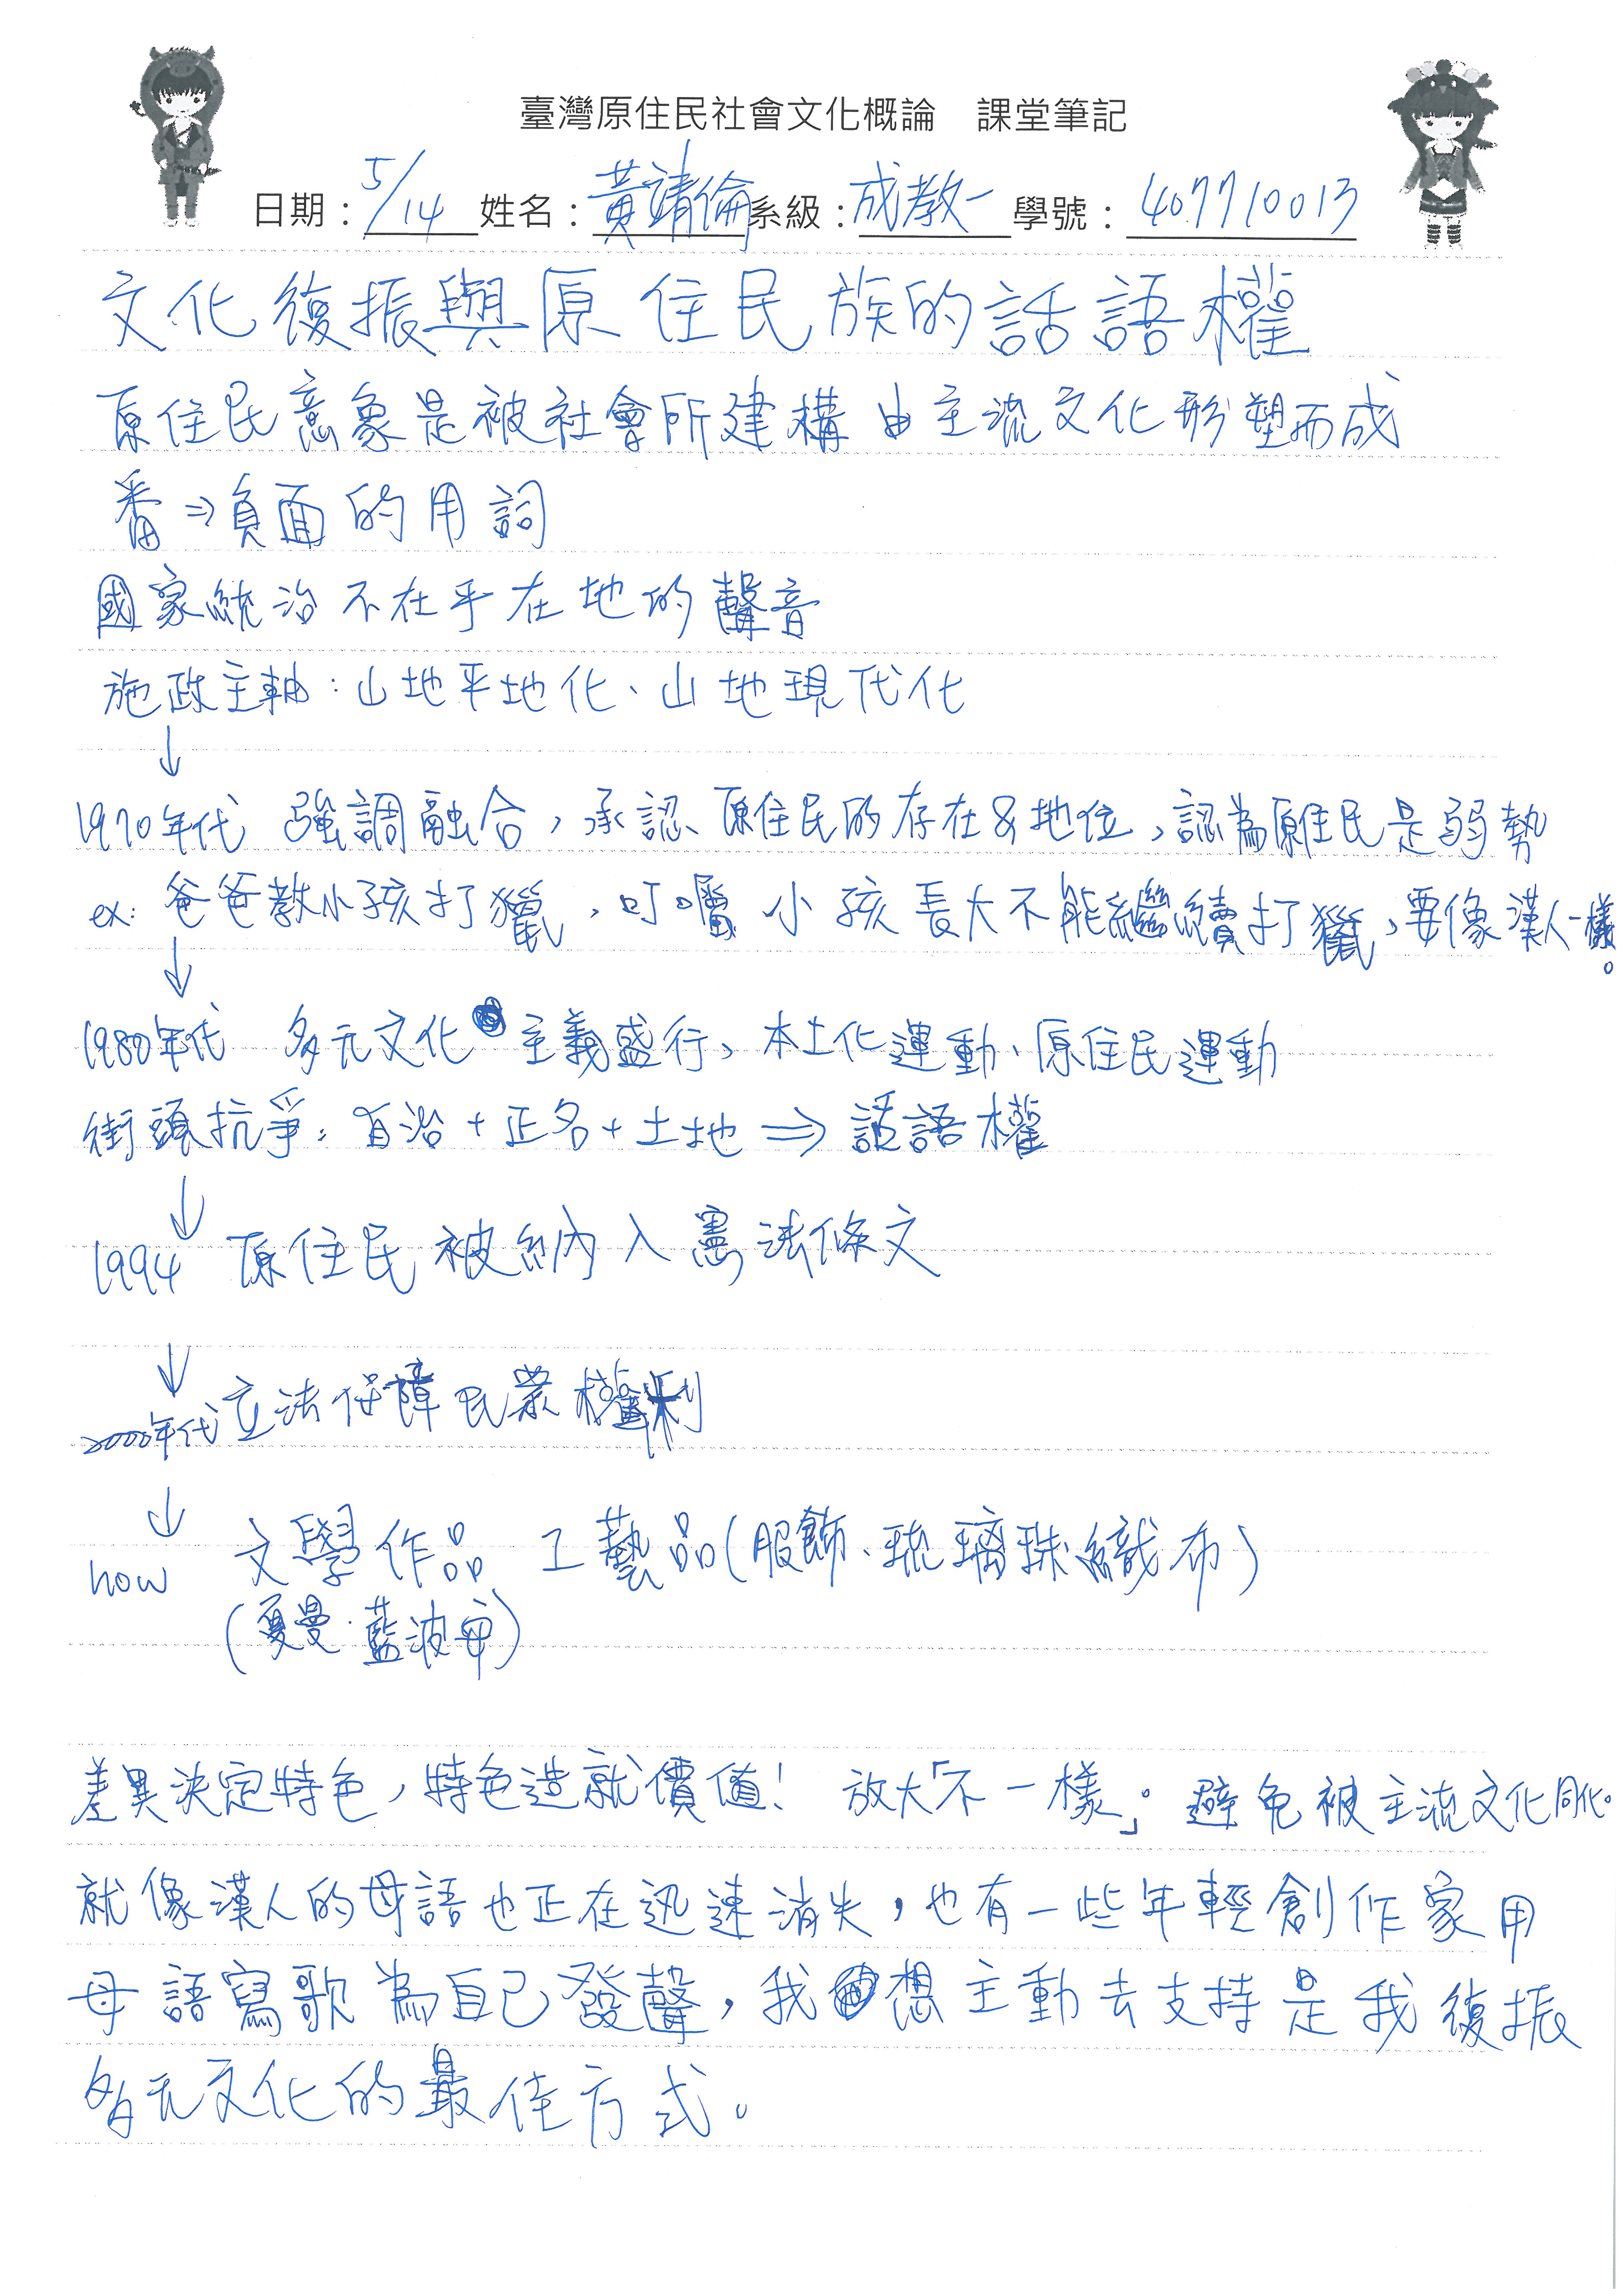 臺灣原住民社會文化概論　課堂筆記
日期：5/14 姓名：黃靖倫 系級：成教一 學號：407710013
文化復振與原住民族的話語權
原住民意象是被社會所建構 由主流文化形塑而成
番⇒負面的用詞
國家統治不在乎在地的聲音
施政主軸：山地平地化、山地現代化
↓
1970年代 強調融合，承認原住民的存在&地位，認為原住民是弱勢
ex: 爸爸教小孩打獵，叮囑小孩長大不能繼續打獵，要像漢人一樣。
↓
1980年代 多元文化主義盛行，本土化運動、原住民運動
街頭抗爭：自治+正名+土地⇒話語權
↓
1994 原住民被納入憲法條文
↓
2000年代 立法保障民眾權利
↓
now 文學作品 工藝品(服飾、琉璃珠、織布)
(夏曼·藍波安)
差異決定特色，特色造就價值！ 放大「不一樣」：避免被主流文化同化。
就像漢人的母語也正在迅速消失，也有一些年輕創作家用
母語寫歌為自己發聲，我想主動去支持是我復振
多元文化的最佳方式。